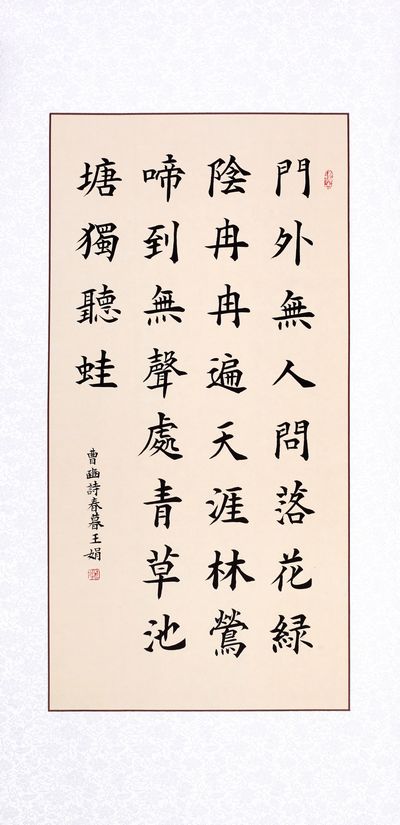 門外無人問落花緑
陰冉冉遍天涯林鶯
啼到無聲處青草池
塘獨聽蛙
曹豳詩春暮王娟